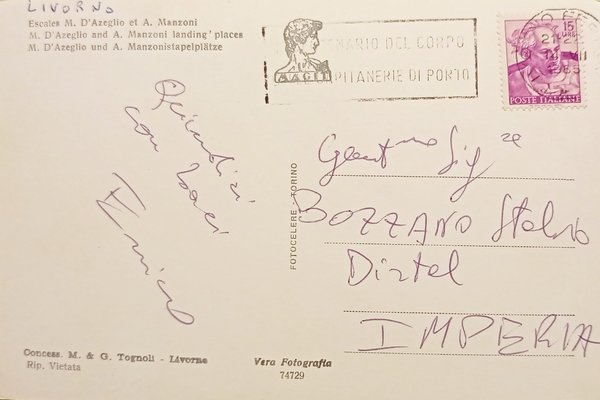 LIVORNO
Escales M. D'Azeglio et A. Manzoni
M. D'Azeglio and A. Manzoni landing' places
M. D'Azeglio und A. Manzonistapelplätze
ENARIO DEL CORPO
PITANERIE DI PORTO
15
LIRE
1965
POSTE ITALIANE
con baci
Enrico
FOTOCELERE - TORINO
Gent.mo Sig.
BOZZANO Stelvio
Dirtel
IMPERIA
Concess. M. & G. Tognoli - Livorno
Rip. Vietata
Vera Fotografia
74729